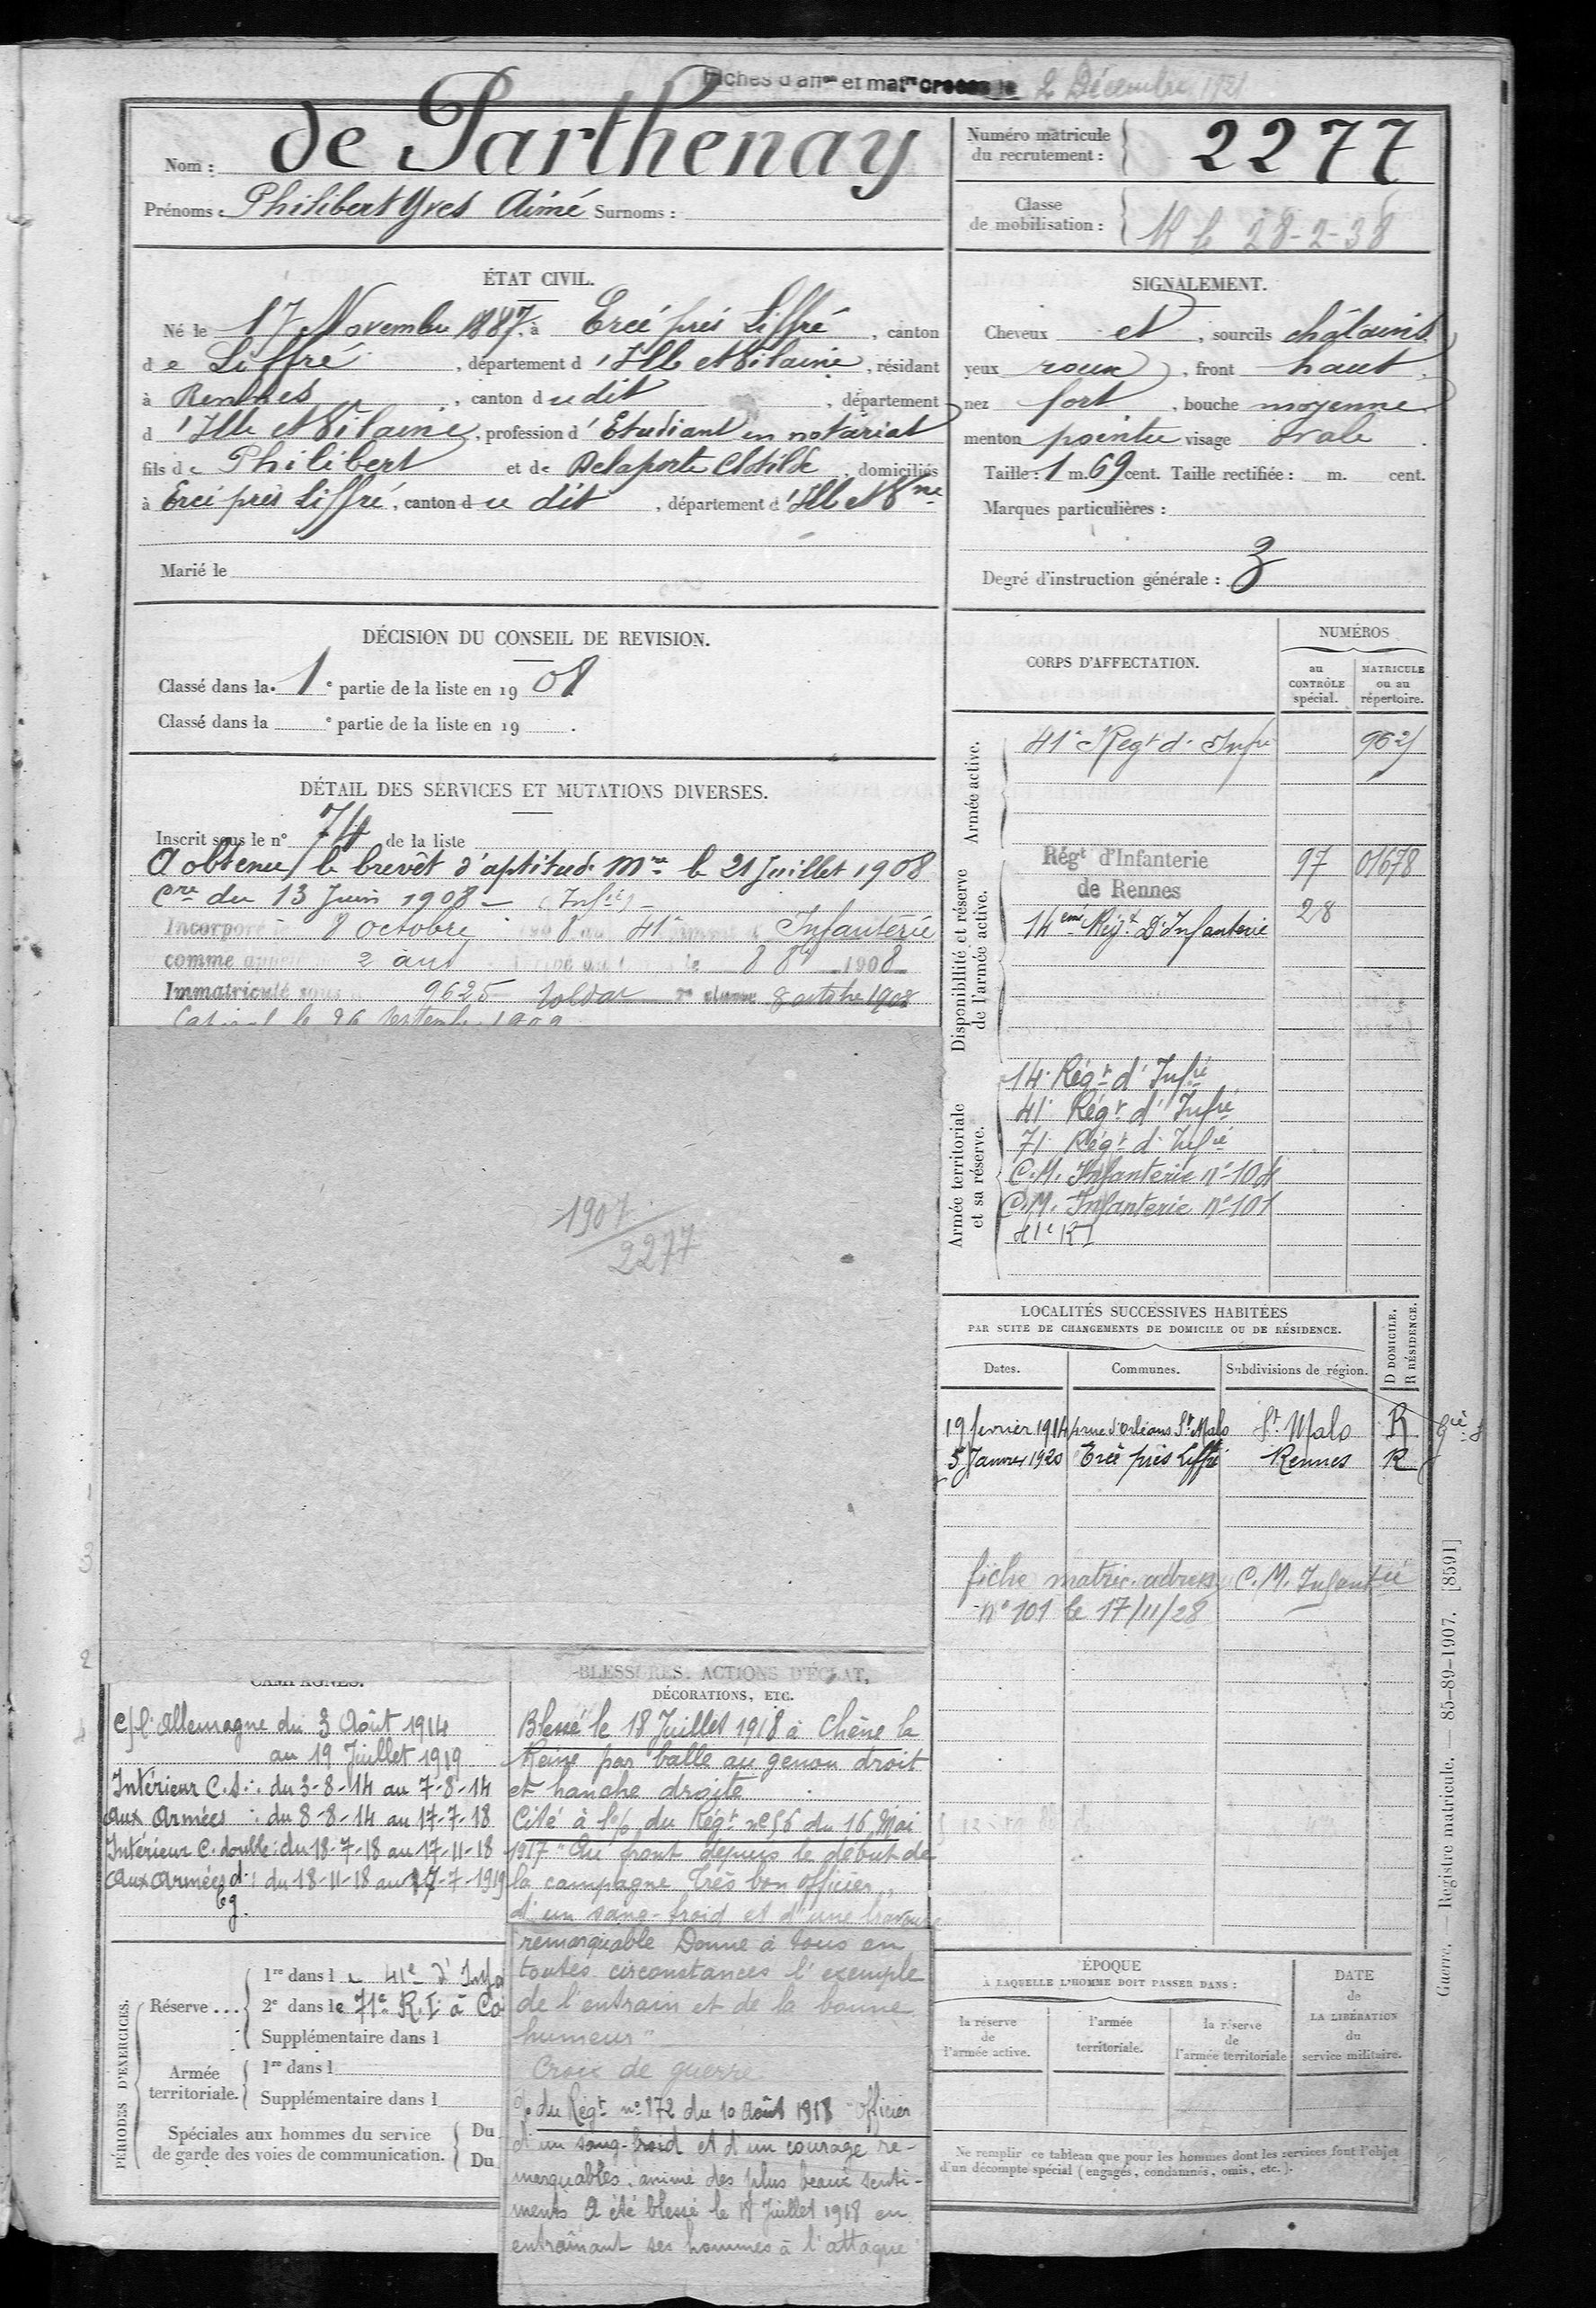 Fiches d'affon et matre créées le 2 Décembre 1921
Nom : de Parthenay
Prénoms : Philibert Yves Aimé Surnoms :
Numéro matricule
du recrutement : 2277
Classe
de mobilisation : 28-2-38
ÉTAT CIVIL.
Né le 17 Novembre 1887, à Ercé près Liffré, canton
de Liffré, département d'Ille et Vilaine, résidant
à Rennes, canton dudit, département
d'Ille et Vilaine, profession d'Etudiant en notariat
fils de Philibert et de Delaporte Clotilde, domiciliés
à Ercé près Liffré, canton du dit, département d'Ille et Vne
Marié le
SIGNALEMENT.
Cheveux et, sourcils châtains
yeux roux, front haut
nez fort, bouche moyenne
menton pointu visage ovale.
Taille : 1 m. 69 cent. Taille rectifiée : m. cent.
Marques particulières :
Degré d'instruction générale : 3
DÉCISION DU CONSEIL DE REVISION.
Classé dans la 1e partie de la liste en 1908
Classé dans la e partie de la liste en 19 .
DÉTAIL DES SERVICES ET MUTATIONS DIVERSES.
Inscrit sous le n° 74 de la liste
A obtenu le brevêt d'aptitude Mre le 21 Juillet 1908
Cre du 13 Juin 1908 - (Infie) -
Incorporé le 8 octobre 1908 au 41e Régiment d'Infanterie
comme appelé 2 ans Arrivé au corps le 8 8bre 1908
Immatriculé sous n° 9625 soldat 2e classe 8 octobre 1908
Caporal le 26 septembre 1909
1907
2277
CORPS D'AFFECTATION.
NUMÉROS
au
CONTRÔLE
spécial.
MATRICULE
ou au
répertoire.
Armée active.
41e Régt d'Infie 9625
Disponibilité et réserve
de l'armée active.
Régt d'Infanterie
de Rennes 97 01678
14eme Régt D'Infanterie 28
Armée territoriale
et sa réserve.
14e Régt d'Infie
41e Régt d'Infie
71e Régt d'Infie
C.M. Infanterie n° 104
C.M. Infanterie n° 101
41e RI
LOCALITÉS SUCCESSIVES HABITÉES
PAR SUITE DE CHANGEMENTS DE DOMICILE OU DE RÉSIDENCE.
Dates. Communes. Subdivisions de région. D DOMICILE. R RÉSIDENCE.
19 fevrier 1914 rue d'Orléans St Malo St Malo R
5 Janvier 1920 Ercé près Liffré Rennes R
fiche matric. adress C.M. Infanterie
n° 101 le 17/11/28
CAMPAGNES.
C/ l'Allemagne du 3 Août 1914
au 19 Juillet 1919
Intérieur C.S. : du 3-8-14 au 7-8-14
Aux Armées : du 8-8-14 au 17-7-18
Intérieur C. double : du 18-7-18 au 17-11-18
Aux Armées d : du 18-11-18 au 17-7-1919
BLESSURES, ACTIONS D'ÉCLAT,
DÉCORATIONS, ETC.
Blessé le 18 Juillet 1918 à Chêne la
Reine par balle au genou droit
et hanche droite
Cité à l'o/ du Régt n° 56 du 16 Mai
1917 "Au front depuis le début de
la campagne Très bon officier,
d'un sang-froid et d'une bravoure
remarquable Donne à tous en
toutes circonstances l'exemple
de l'entrain et de la bonne
humeur"
Croix de guerre
o/o du Régt n° 172 du 10 Août 1918 "Officier
d'un sang-froid et d'un courage re-
marquables, animé des plus beaux senti-
ments A été blessé le 18 Juillet 1918 en
entraînant ses hommes à l'attaque
PÉRIODES D'EXERCICES.
Réserve ...
1re dans le 41e d'Infa
2e dans le 71e R.I. à
Supplémentaire dans l
Armée
territoriale.
1re dans l
Supplémentaire dans l
Spéciales aux hommes du service
de garde des voies de communication.
Du
Du
ÉPOQUE
À LAQUELLE L'HOMME DOIT PASSER DANS :
la réserve
de
l'armée active.
l'armée
territoriale.
la réserve
de
l'armée territoriale
DATE
de
LA LIBÉRATION
du
service militaire.
Ne remplir ce tableau que pour les hommes dont les services font l'objet
d'un décompte spécial (engagés, condamnés, omis, etc.).
Guerre. — Registre matricule. — 85-89-1907. [8591]